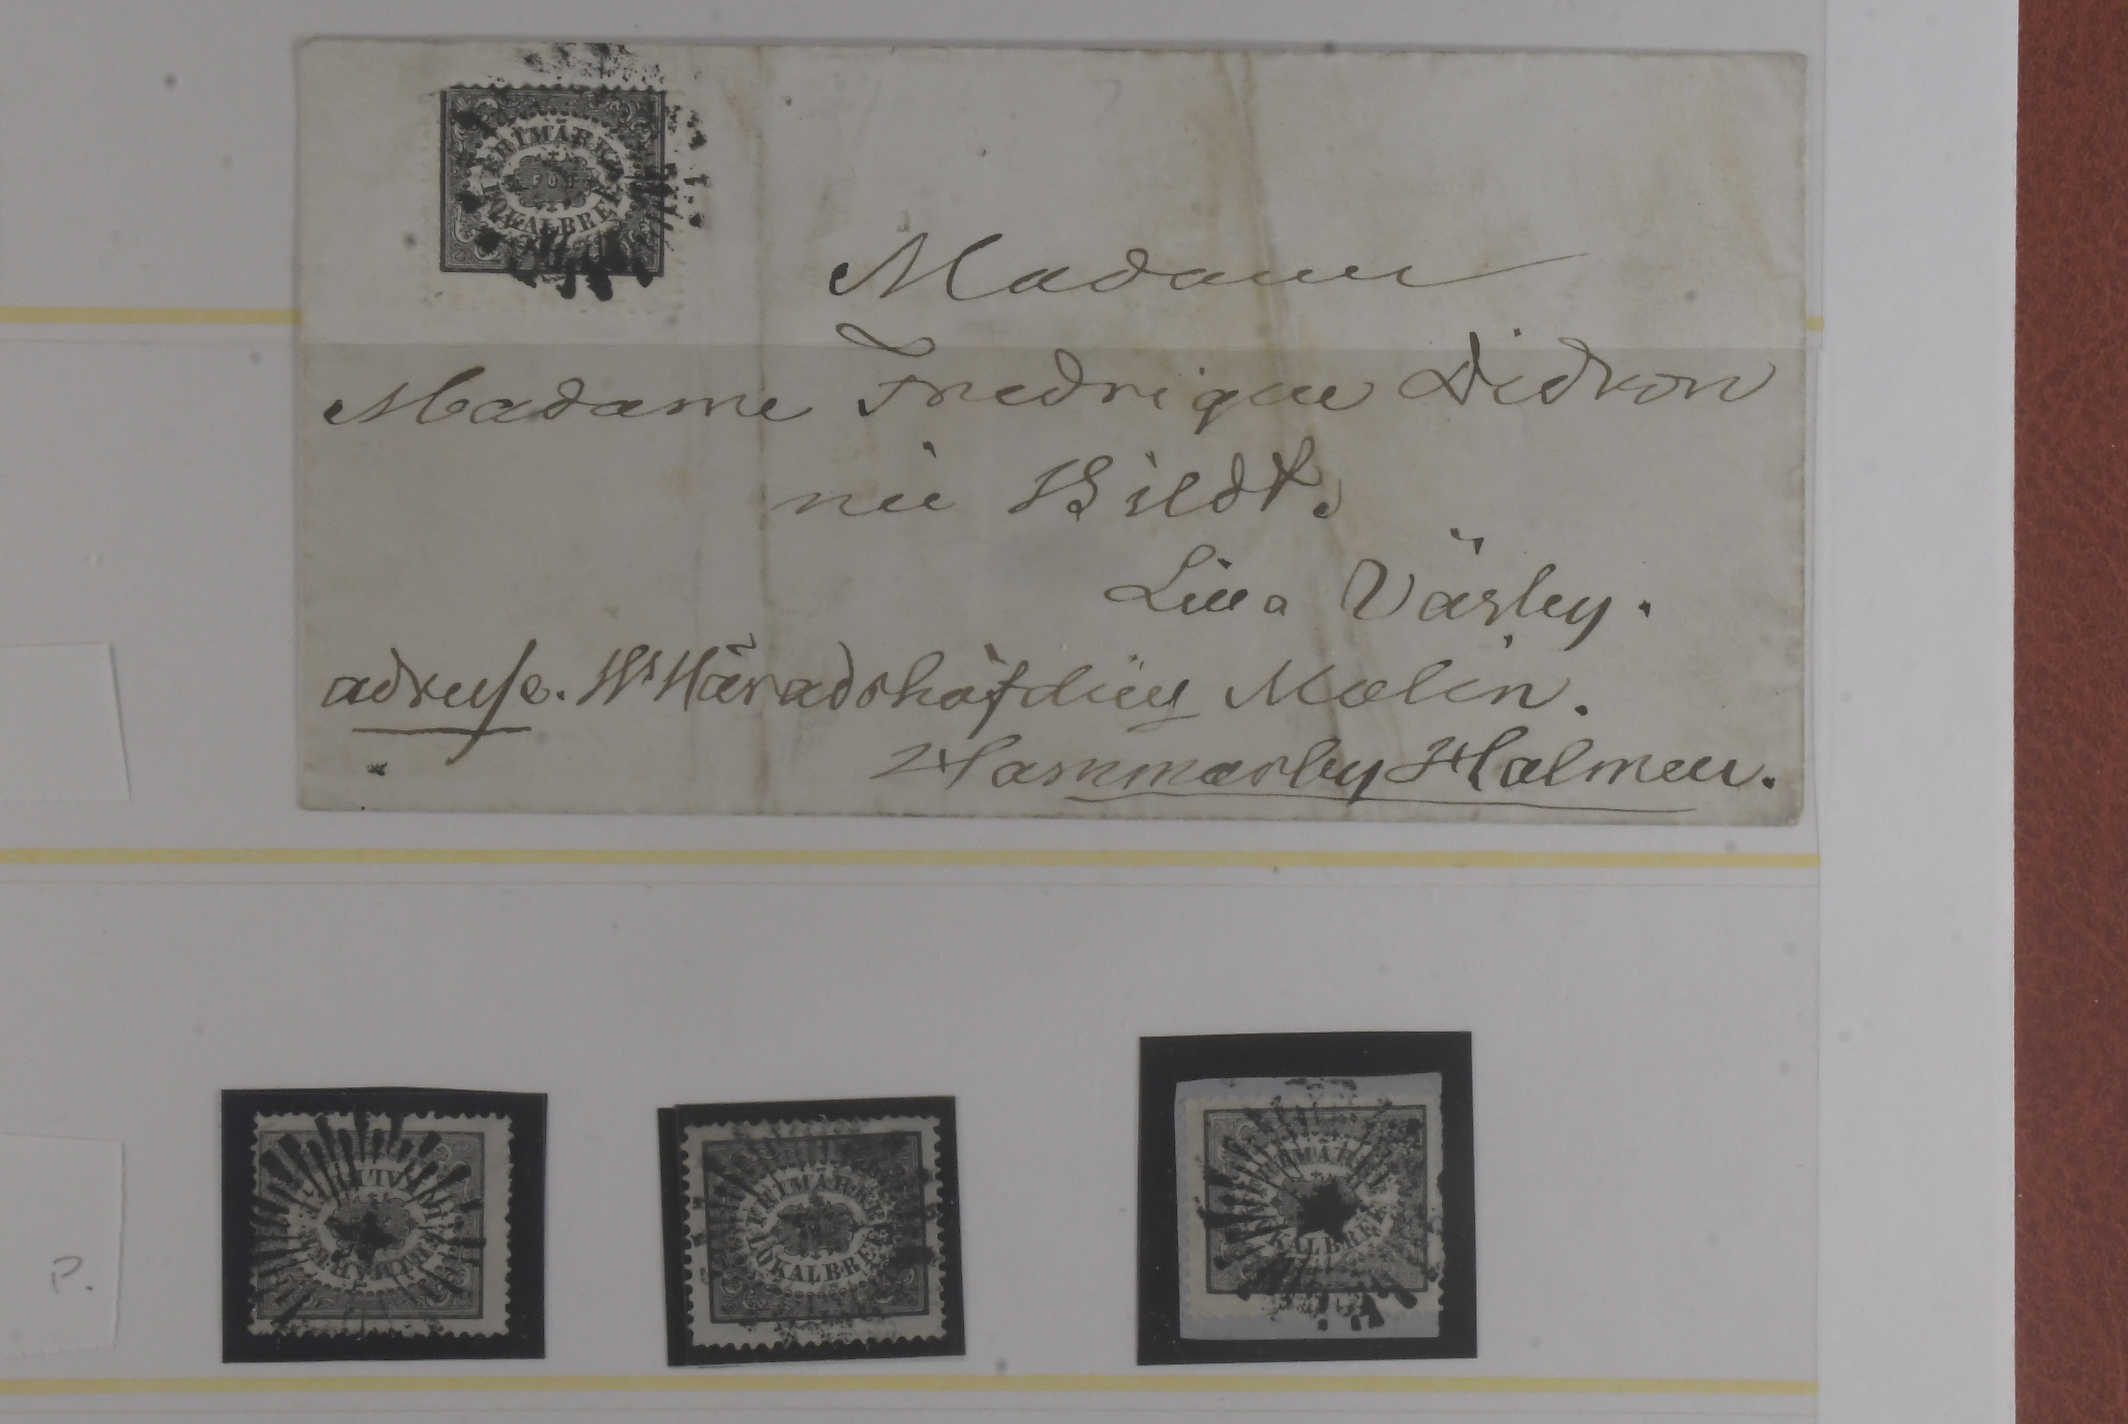 FRIMÄRKE
FÖR
LOKALBREF
Madame
Madame Fredrique Didron
née Bildt.
Lilla Värby.
adresse. Hr Häradshöfding Molin.
Hammarby Holmen.
FRIMÄRKE
LOKALBREF
FRIMÄRKE
LOKALBREF
FRIMÄRKE
LOKALBREF
P.